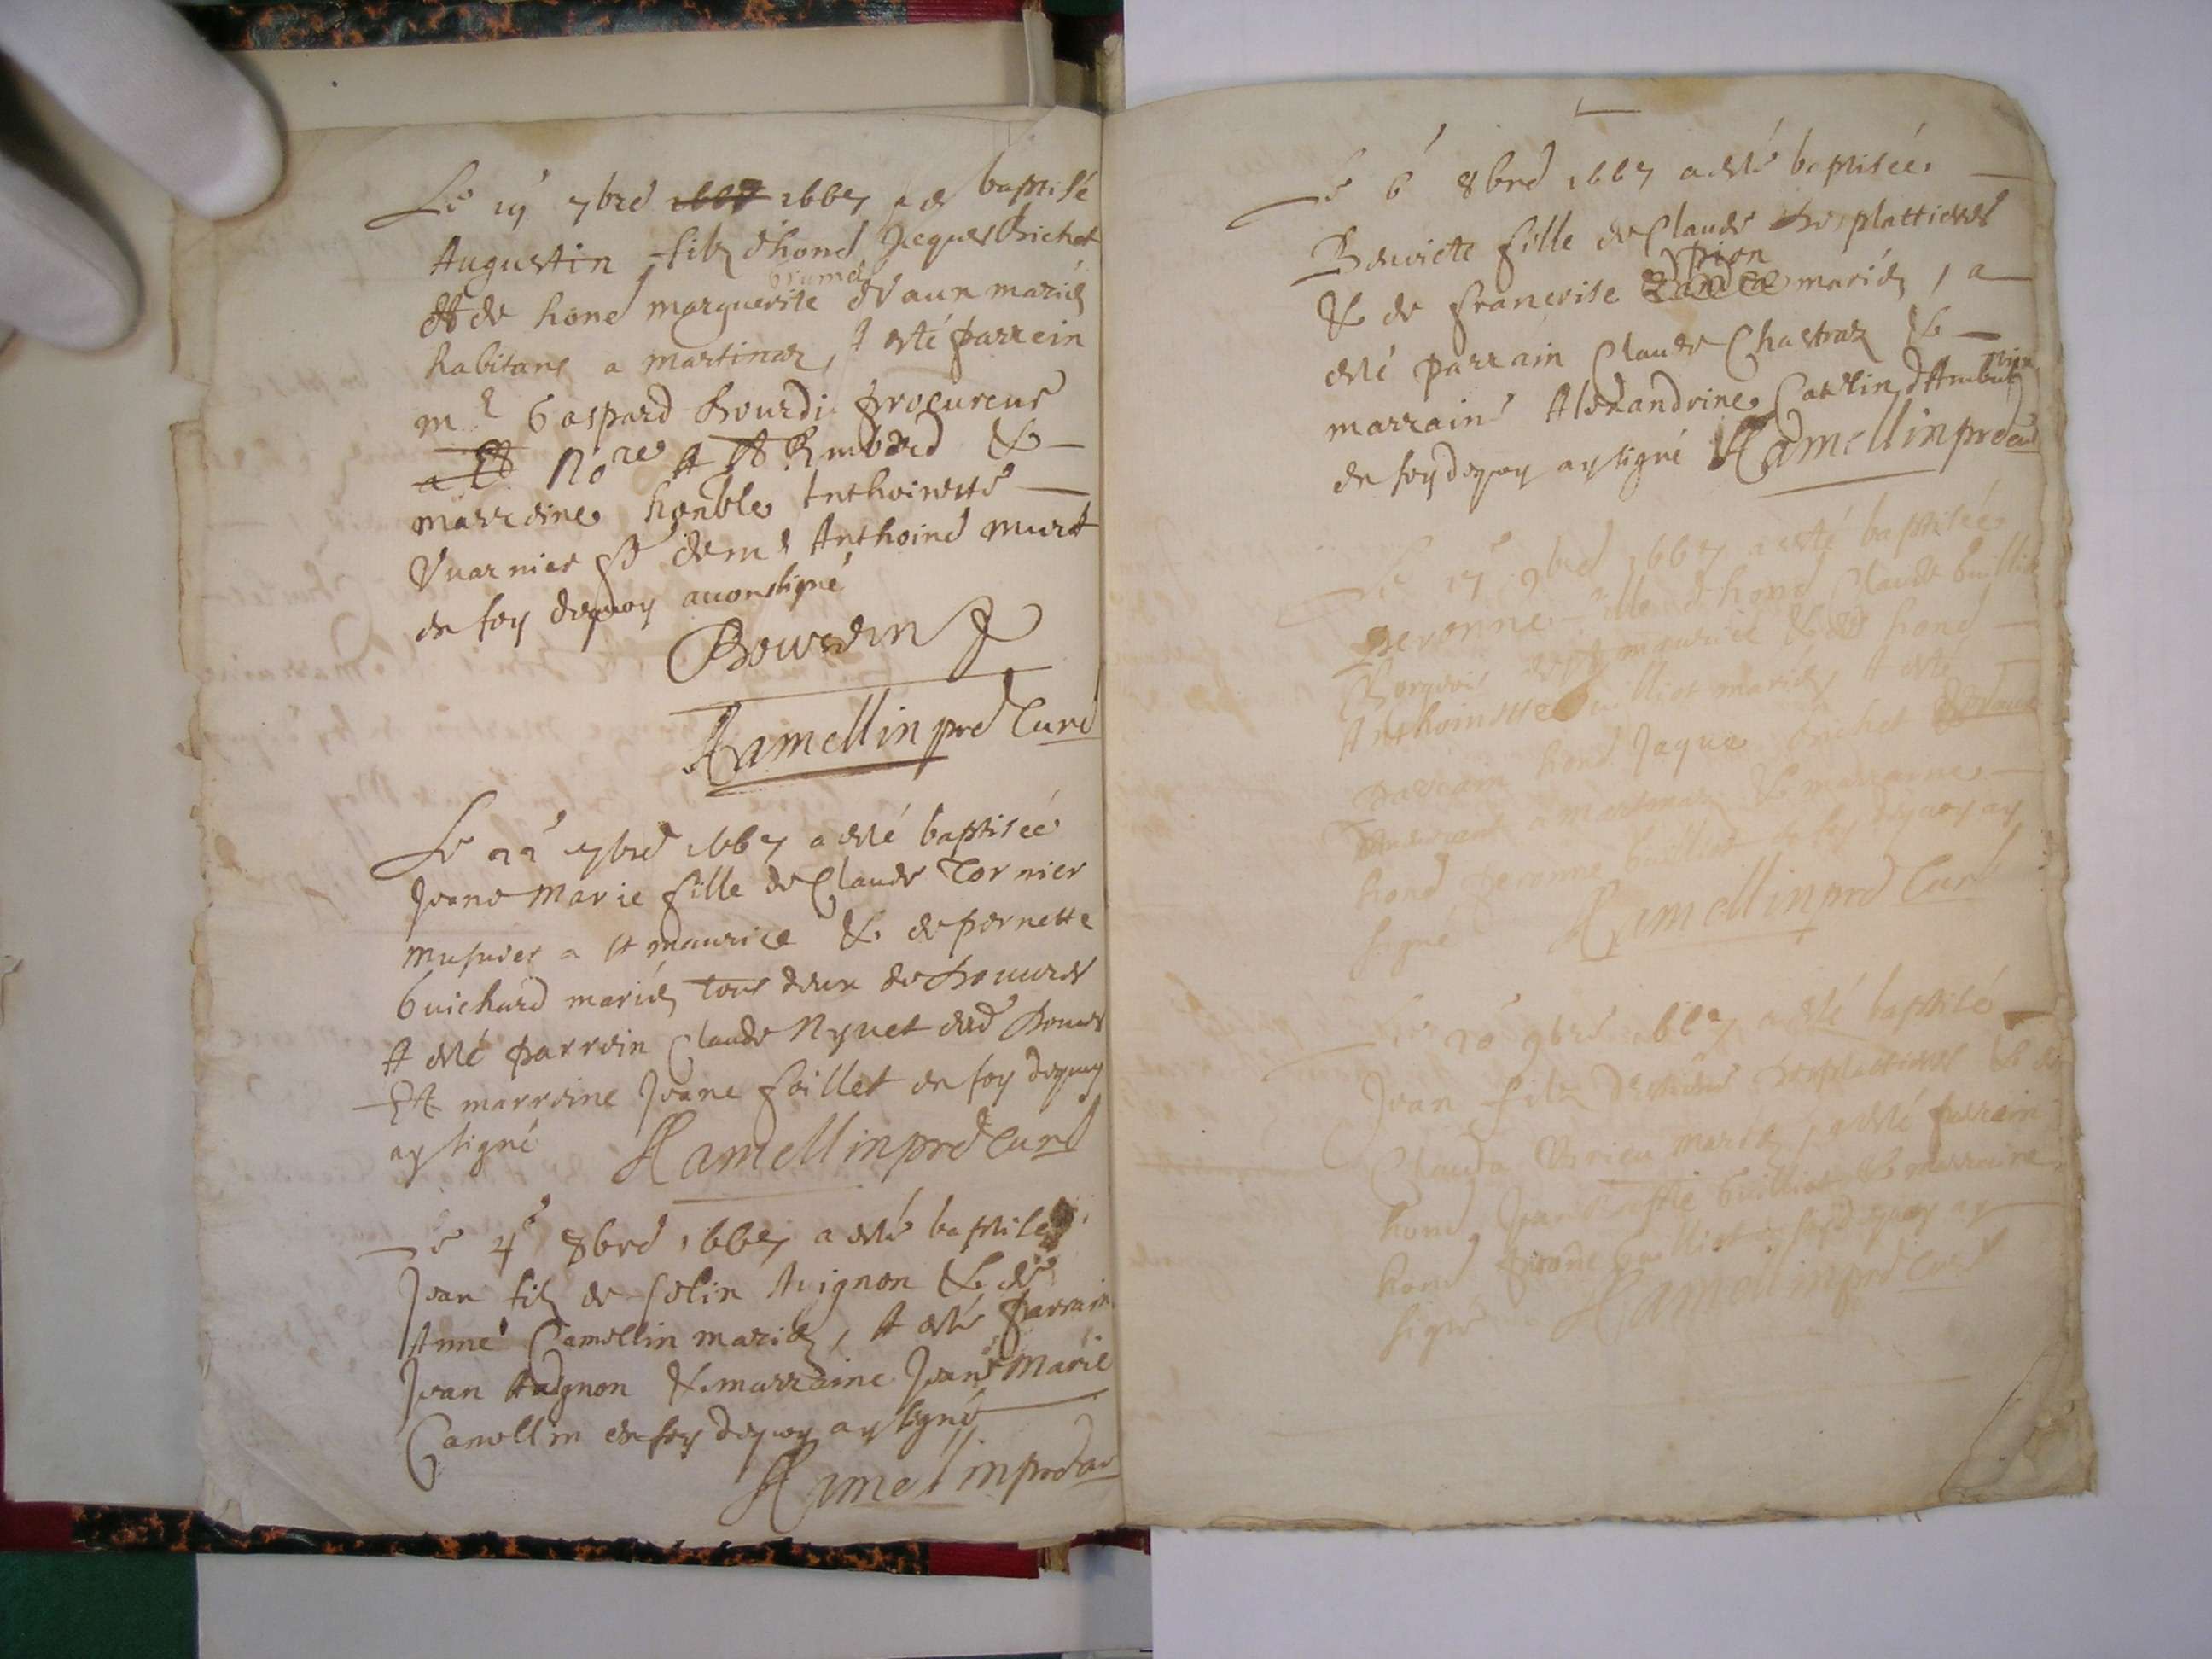 Le 19e 7bre 1667 1667 a esté baptisé
Augustin filz d'hone Jacques Brichet
Et de hone marguerite Deaun mariés
habitans a martinaz, A esté parrein
mr Gaspard Bourdin procureur
a Et Nore A St Rmberd &
marreine honble Anthoinette
Vuarnier fe de mr Anthoine muret
en foy dequoy auons signé
Bourdin
Hamellin pre Curé
Le 22e 7bre 1667 a esté baptisée
Jeane Marie fille de Claude Tornier
musnier a st maurice & de pernette
Guichard mariés tous deux de Douures
A esté parrein Claude Nyuet de Douures
Et marreine Jeane foillet en foy dequoy
ay signé Hamellin pre Curé
Le 4e 8bre 1667 a esté baptisé
Jean filz de Colin Auignon & de
Anne Camellin mariés, A esté parrain
Jean Auignon & marraine Jeane Marie
Camellin en foy dequoy ay signé
Hamellin pre Cu
Le 6e 8bre 1667 a esté baptisée
Benoiete fille de Claude Desplattieres
pion
& de francoise mariés, a
esté parrain Claude Chastraz &
marraine Alexandrine Catelin d'Ambutrix
en foy dequoy ay signé Hamellin pre cu
Le 17e 9bre 1667 a esté baptisée
peronne fille d'hone Claude Guilliot
Borgeois de st maurice & de hone
Anthoinette Guilliot mariés A esté
parrain hone Jaque Brichet
a martinaz & marraine
hone peronne Guilliot en foy dequoy ay
signé Hamellin pre Curé
Le 20e 9bre 1667 a esté baptisé
Jean filz Desplattieres & de
Clauda mariés, a esté parrain
hone Jean Guilliot & marraine
hone Guilliot en foy dequoy ay
signé Hamellin pre Curé